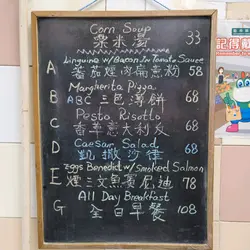 Corn Soup
粟米湯 33
Linguine w/ Bacon In Tomato Sauce
A 蕃茄煙肉扁意粉 58
Margherita Pizza
B ABC 三色薄餅 68
Pesto Risotto
C 香草意大利反 68
Caesar Salad
D 凱撒沙律 68
Eggs Benedict w/ Smoked Salmon
E 煙三文魚賓尼迪 78
All Day Breakfast
G 全日早餐 108
記得戴